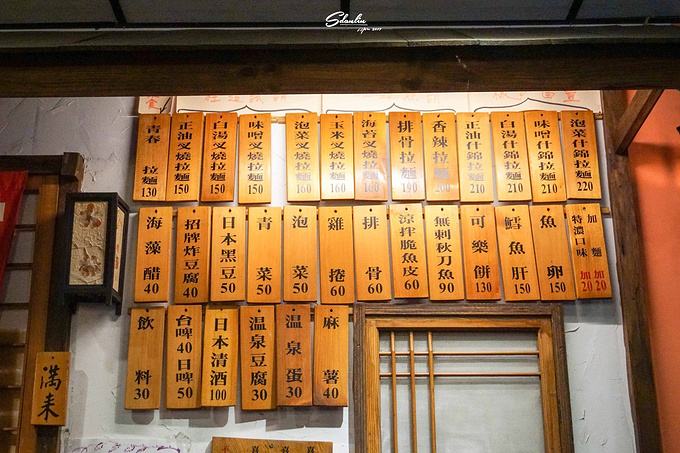 Sdanlin
青春拉麵 130
正油叉燒拉麵 150
白湯叉燒拉麵 150
味噌叉燒拉麵 150
泡菜叉燒拉麵 160
玉米叉燒拉麵 160
海苔叉燒拉麵 160
排骨拉麵 190
香辣拉麵 200
正油什錦拉麵 210
白湯什錦拉麵 210
味噌什錦拉麵 210
泡菜什錦拉麵 220
海藻醋 40
招牌炸豆腐 40
日本黑豆 50
青菜 50
泡菜 50
雞捲 60
排骨 60
涼拌脆魚皮 60
無刺秋刀魚 90
可樂餅 130
鱈魚肝 150
魚卵 150
加麵 加20
特濃口味 加20
飲料 30
台啤40
日啤50
日本清酒 100
溫泉豆腐 30
溫泉蛋 30
麻薯 40
滿來